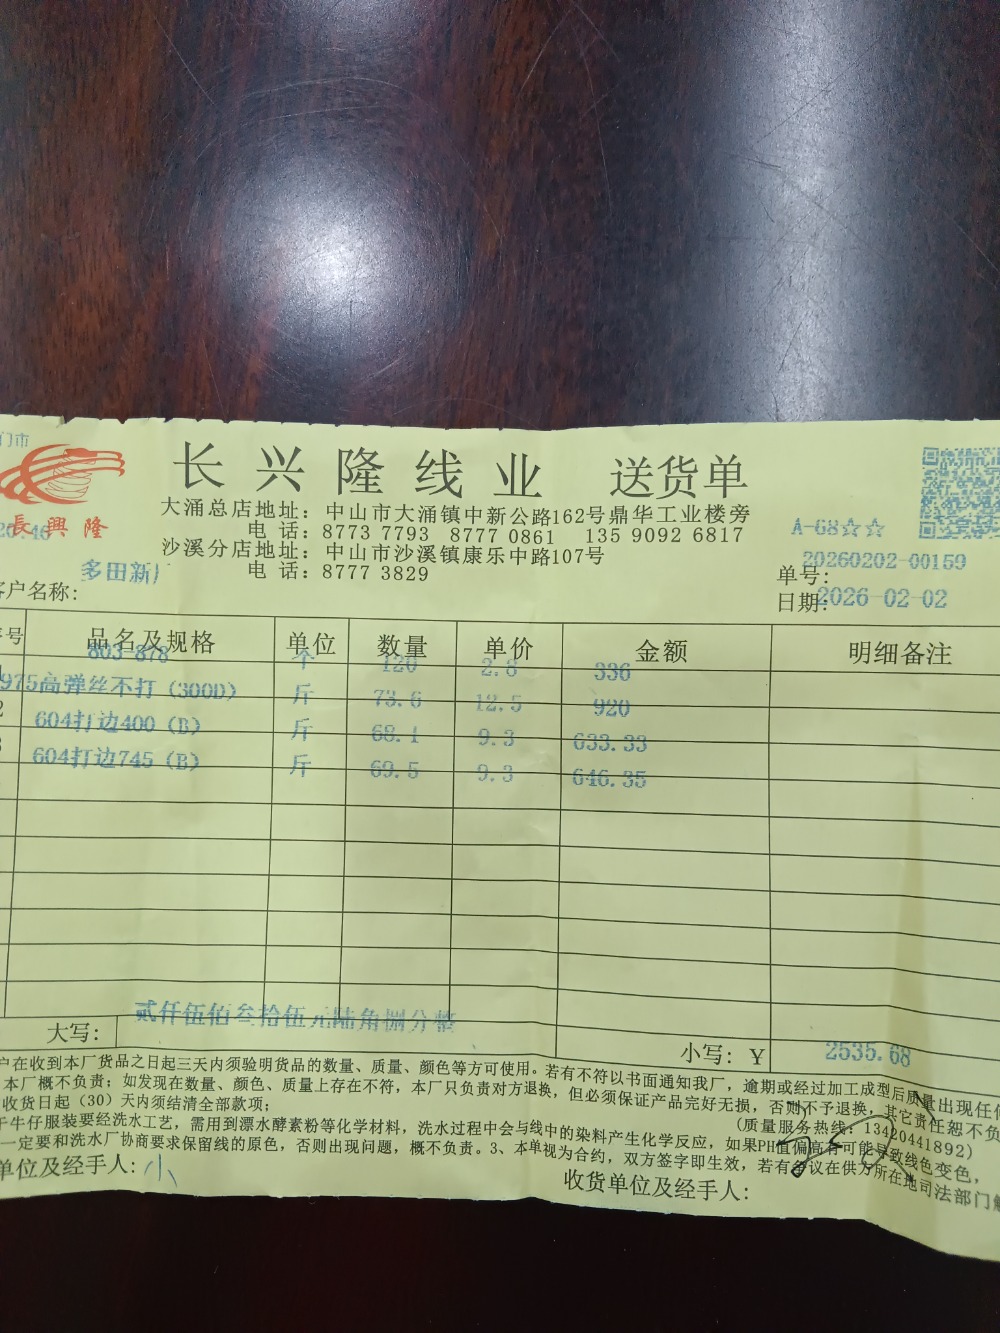 门市
长兴隆线业 送货单
長興隆
大涌总店地址：中山市大涌镇中新公路162号鼎华工业楼旁
电 话：8773 7793 8777 0861 135 9092 6817
沙溪分店地址：中山市沙溪镇康乐中路107号
电 话：8777 3829
A-68☆☆
单号：20260202-00159
日期：2026-02-02
客户名称：多田新
序号 品名及规格 单位 数量 单价 金额 明细备注
803-878 个 120 2.8 336
975高弹丝不打（300D） 斤 73.6 12.5 920
2 604打边400（B） 斤 68.1 9.3 633.33
3 604打边745（B） 斤 69.5 9.3 646.35
大写：贰仟伍佰叁拾伍元陆角捌分整
小写：￥ 2535.68
户在收到本厂货品之日起三天内须验明货品的数量、质量、颜色等方可使用。若有不符以书面通知我厂，逾期或经过加工成型后质量出现任何
本厂概不负责；如发现在数量、颜色、质量上存在不符，本厂只负责对方退换，但必须保证产品完好无损，否则不予退换，其它责任恕不负
收货日起（30）天内须结清全部款项；
（质量服务热线：13420441892）
于牛仔服装要经洗水工艺，需用到漂水酵素粉等化学材料，洗水过程中会与线中的染料产生化学反应，如果PH值偏高有可能导致线色变色，
一定要和洗水厂协商要求保留线的原色，否则出现问题，概不负责。3、本单视为合约，双方签字即生效，若有争议在供方所在地司法部门解
单位及经手人：小
收货单位及经手人：